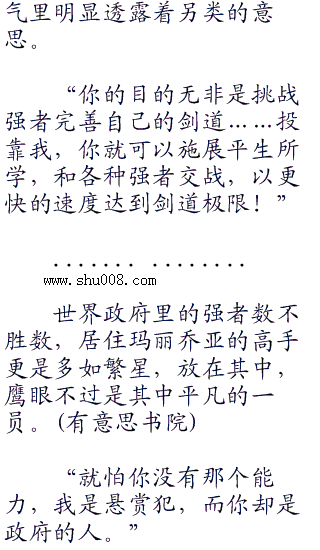 气里明显透露着另类的意
思。
“你的目的无非是挑战
强者完善自己的剑道……投
靠我，你就可以施展平生所
学，和各种强者交战，以更
快的速度达到剑道极限！”
....... ........
www.shu008.com
世界政府里的强者数不
胜数，居住玛丽乔亚的高手
更是多如繁星，放在其中，
鹰眼不过是其中平凡的一
员。(有意思书院)
“就怕你没有那个能
力，我是悬赏犯，而你却是
政府的人。”